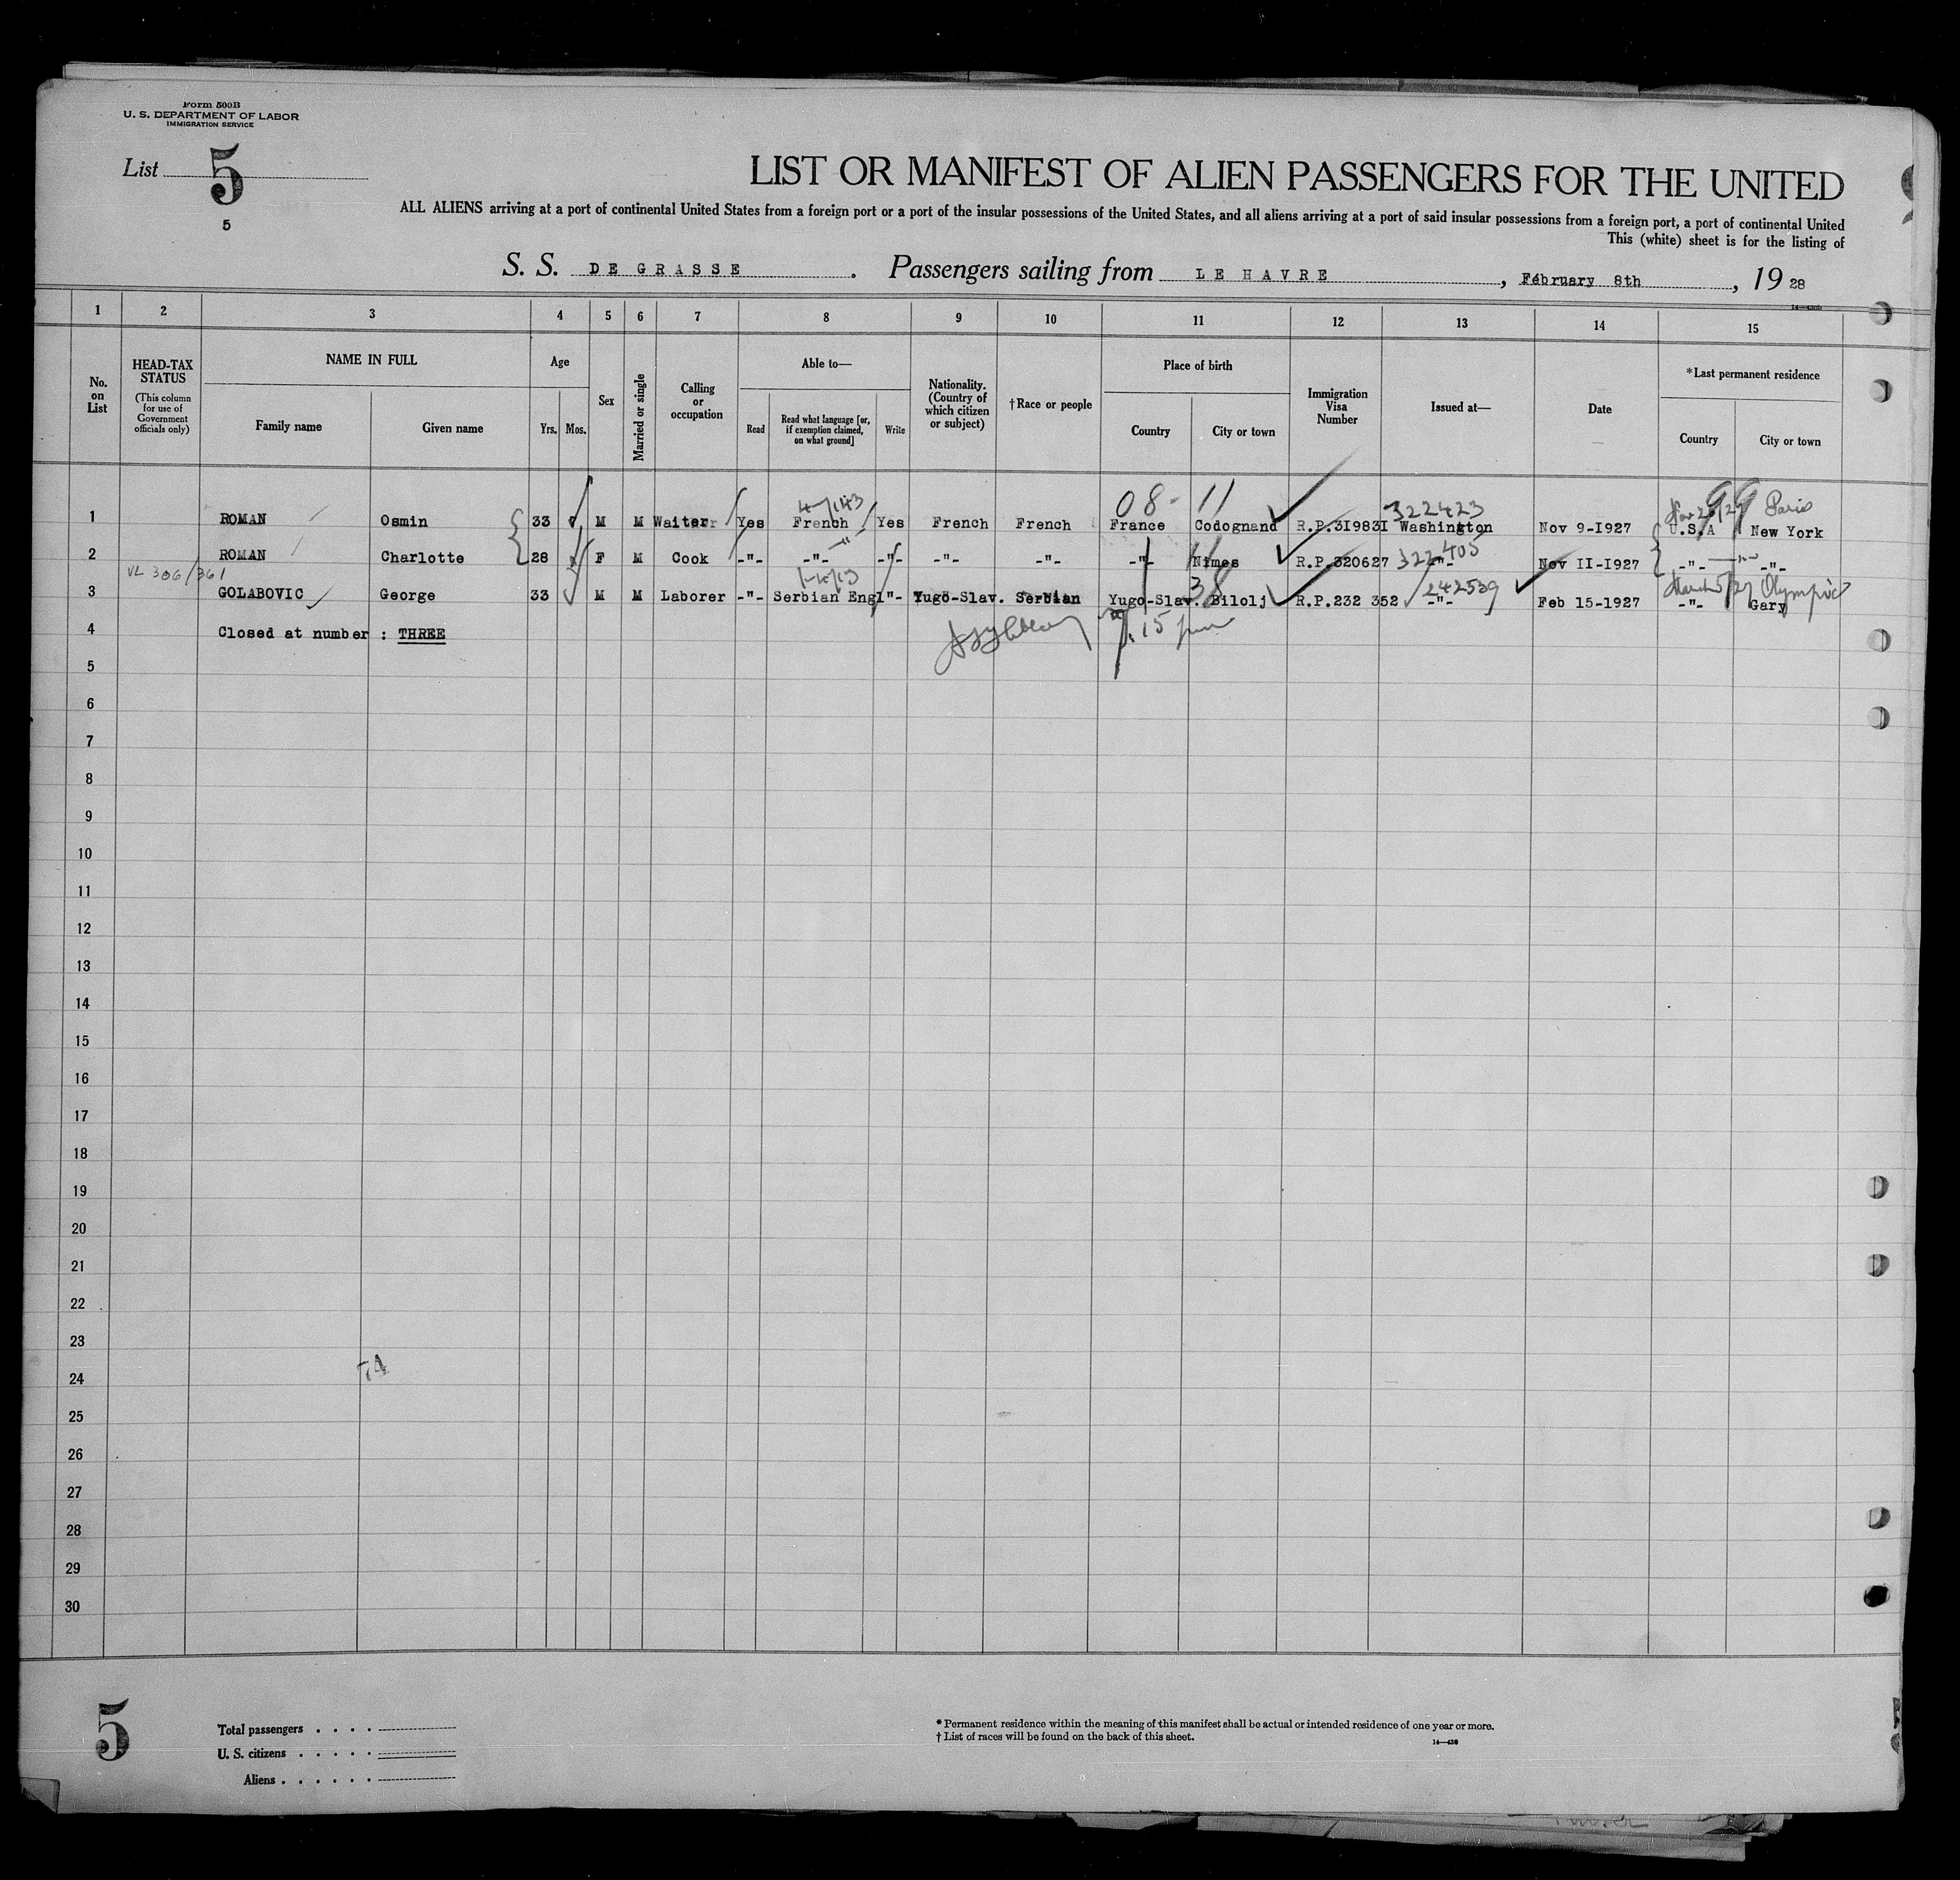 Form 500B
U. S. DEPARTMENT OF LABOR
IMMIGRATION SERVICE
List 5
5
LIST OR MANIFEST OF ALIEN PASSENGERS FOR THE UNITED
ALL ALIENS arriving at a port of continental United States from a foreign port or a port of the insular possessions of the United States, and all aliens arriving at a port of said insular possessions from a foreign port, a port of continental United
This (white) sheet is for the listing of
S. S. DE GRASSE . Passengers sailing from LE HAVRE , February 8th , 19 28
1 2 3 4 5 6 7 8 9 10 11 12 13 14 15
No. on List
HEAD-TAX STATUS
(This column for use of Government officials only)
NAME IN FULL
Family name
Given name
Age
Yrs. Mos.
Sex
Married or single
Calling or occupation
Able to—
Read
Read what language [or, if exemption claimed, on what ground]
Write
Nationality. (Country of which citizen or subject)
†Race or people
Place of birth
Country
City or town
Immigration Visa Number
Issued at—
Date
*Last permanent residence
Country
City or town
08- 11 322423 Paris
1 ROMAN Osmin 33 M M Waiter Yes French Yes French French France Codognand R.P.3I983I Washington Nov 9-I927 U.S.A New York
322405
2 ROMAN Charlotte 28 F M Cook -"- -"- -"- -"- -"- -"- Nimes R.P.320627 -"- Nov II-I927 -"- -"-
VL 306/361 38 242539 March 5/27 Olympic
3 GOLABOVIC George 33 M M Laborer -"- Serbian Engl"- Yugo-Slav. Serbian Yugo-Slav. Bilolj R.P.232 352 -"- Feb 15-1927 -"- Gary
4 Closed at number : THREE
5
6
7
8
9
10
11
12
13
14
15
16
17
18
19
20
21
22
23
74
24
25
26
27
28
29
30
5
Total passengers . . . .
U. S. citizens . . . . .
Aliens . . . . . .
* Permanent residence within the meaning of this manifest shall be actual or intended residence of one year or more.
† List of races will be found on the back of this sheet.
14—430